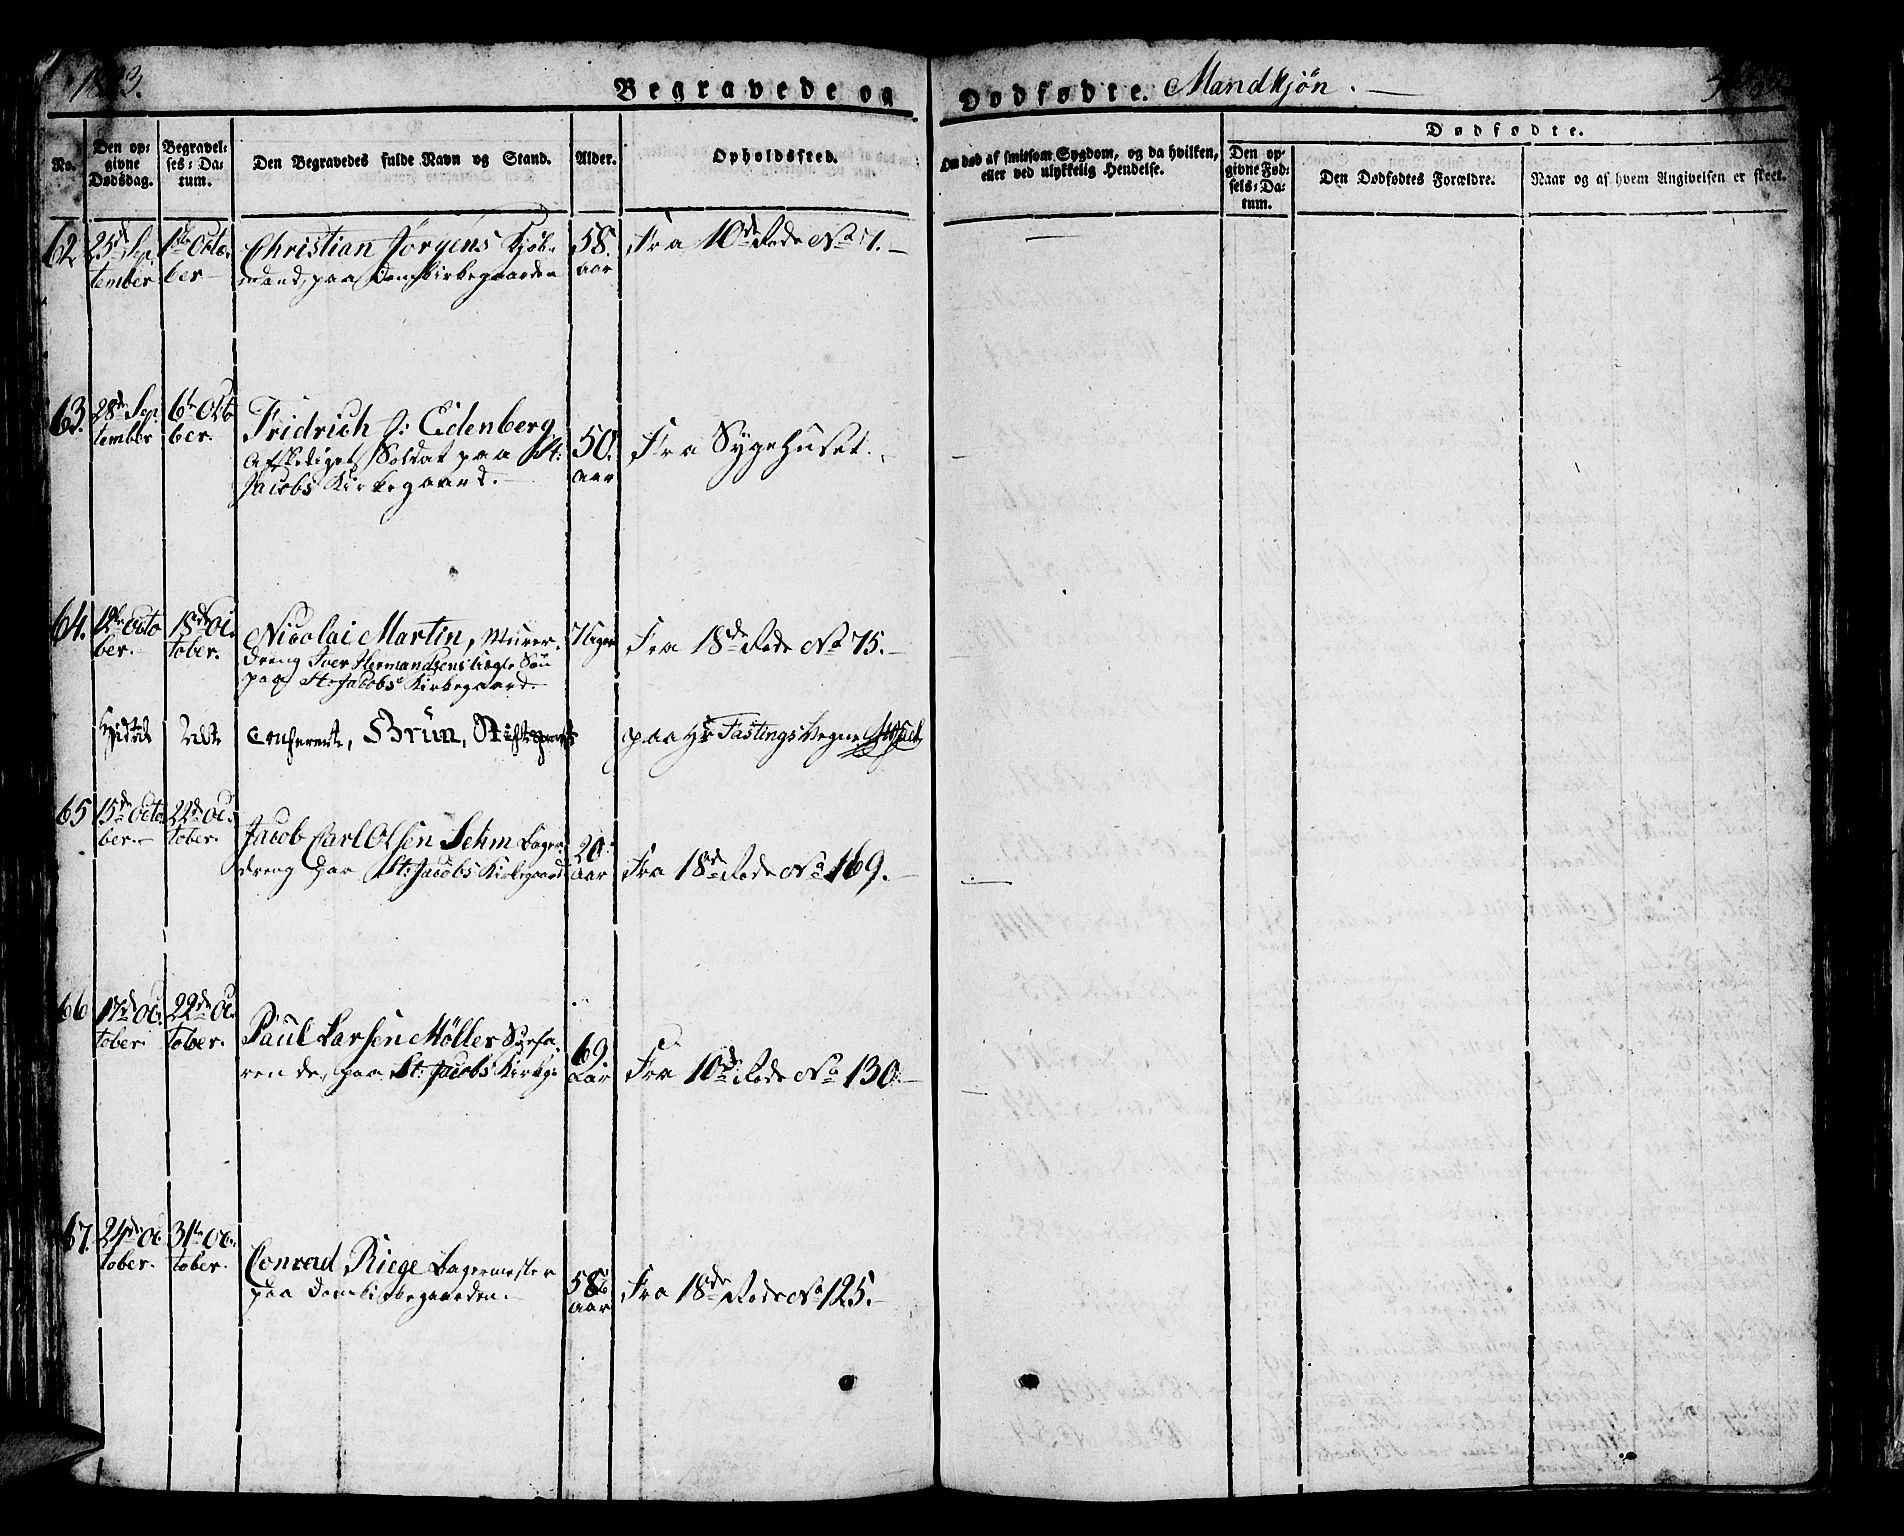 Begravede og Dødfødte. Mandkjön.
No.
Den op-
givne
Dødsdag.
Begravel-
ses-Da-
tum.
Den Begravedes fulde Navn og Stand.
Alder.
Opholdssted.
Om død af smitsom Sygdom, og da hvilken,
eller ved ulykkelig Hendelse.
Dødfødte.
Den op-
givne Fød-
sels-Da-
tum.
Den Dødfødtes Forældre.
Naar og af hvem Angivelsen er skeet.
62 25de Sep
tember
1ste Octo
ber
Christian Jørgens Kjöb-
mand, paa Domkirkegaarden
58.
aar
Fra 10de Rode No 7.
63. 28de Sep
tember
6te Octo
ber.
Fridrich J: Edenberg
Afskediget Soldat paa St:
Jacobs Kirkegaard.
50.
aar
Fra Sygehuset.
64. 12te Octo
ber.
18de Oc
tober.
Nicolai Martin, Murer-
dreng Iver Hermandsens Sön
paa St: Jacobs Kirkegaard.
Fra 18de Rode No 75.
Brun,
paa Hr Fastings Vegne
65 15de Octo
ber.
22de Oc
tober.
Jacob Carl Olsen Sehm Bager
dreng paa St: Jacobs Kirkegaard
20
aar
Fra 18de Rode No 169.
66 17de Oc
tober
22de Oc
tober.
Paul Larsen Möller Syefa
rende, paa St: Jacobs Kirkg:
69.
aar
Fra 10de Rode No 130.
67. 24de Oc
tober.
31te Oc
tober.
Conrad Riege Bagermester
paa Domkirkegaarden.
58
aar
Fra 18de Rode No 125.